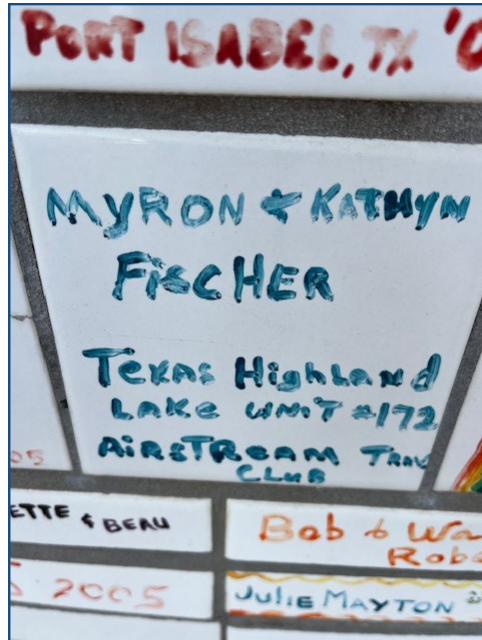 PORT ISABEL, TX '0
MYRON & KATHYN
FISCHER
TEXAS HighLAND
LAKE UNIT #172
AIRSTREAM TRAV
CLUB
05
ETTE & BEAU
Bob & Wa
Robe
2005
JULIE MAYTON